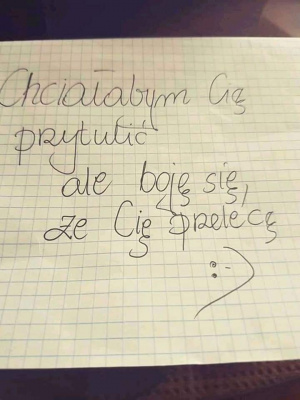 Chciałabym Cię
przytulić
ale boję się,
że Cię przelecę
:-)